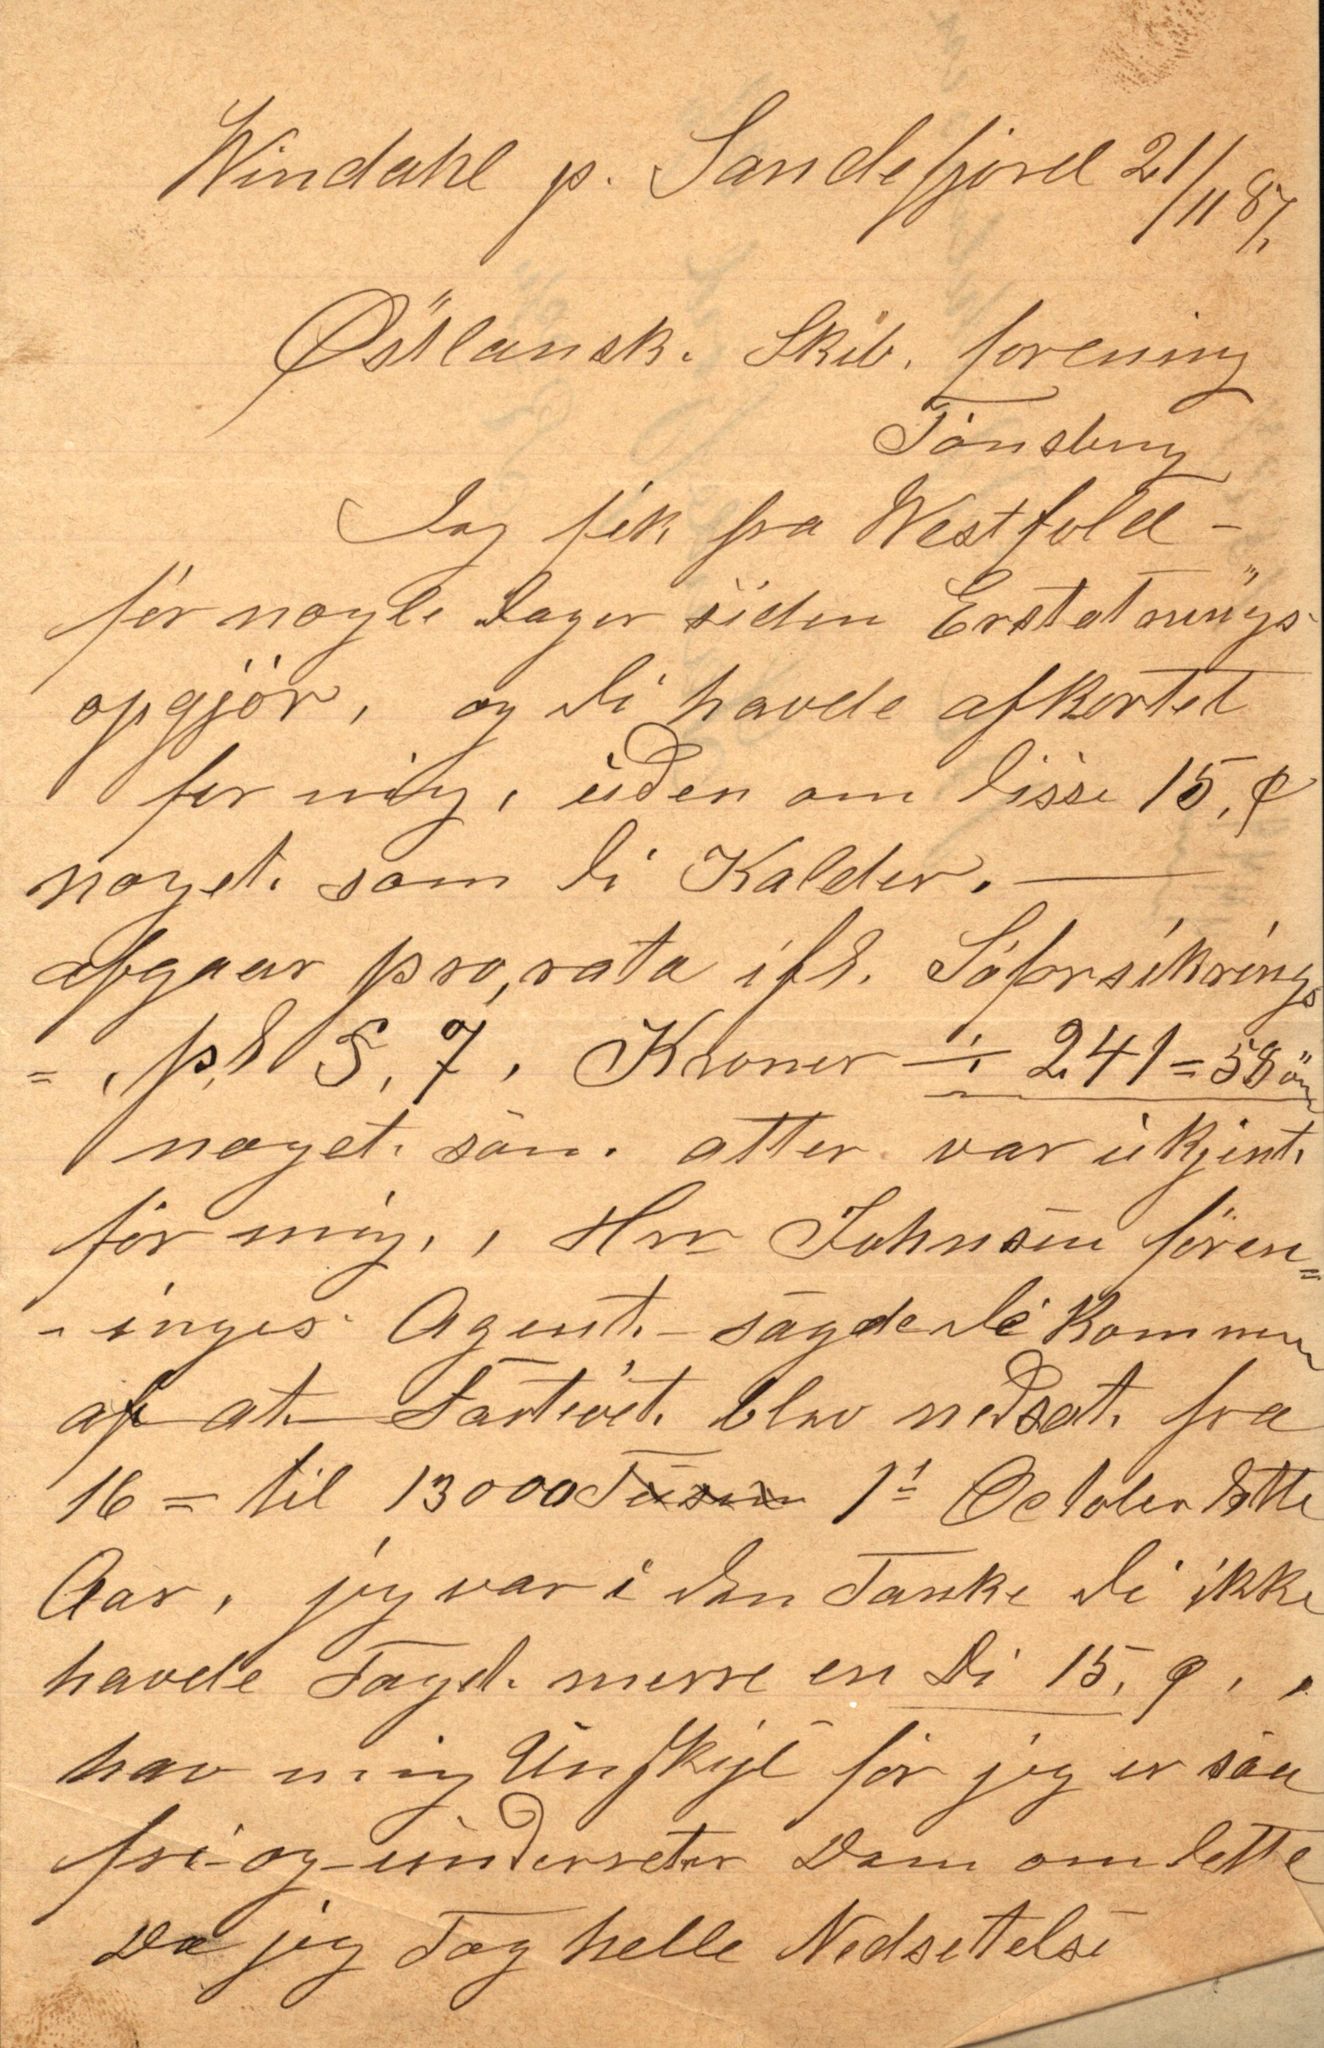 Windahl p. Sandefjord 21/11 87,
Östlansk. Skib. forening
Tönsberg
Jeg fik fra Westfold –
för nogle Dager siden Erstatnings-
opgjör, og di havde afkortet
for mig, uden om disse 15, %
noget. som di Kalder. —
afgaar pro, rata ifl. Söforsikrings
= , pl § 7, Kroner ÷ 241 = 58 öre
noget. som. atter var ukjent.
för mig, , Hrr Johnsen foren=
- inges Agent. – sagde de kommer
af at Fartöiet. blev nedsat. fra
16 = til 13000 Tusen 1ste October dette
Aar, jeg var i den Tanke di ikke
havde Taget. merre en di 15, % , ,
hav mig Unskyl för jeg er saa
fri – og – underreter Dem om dette
Da jeg Tog helle Nedsettelse